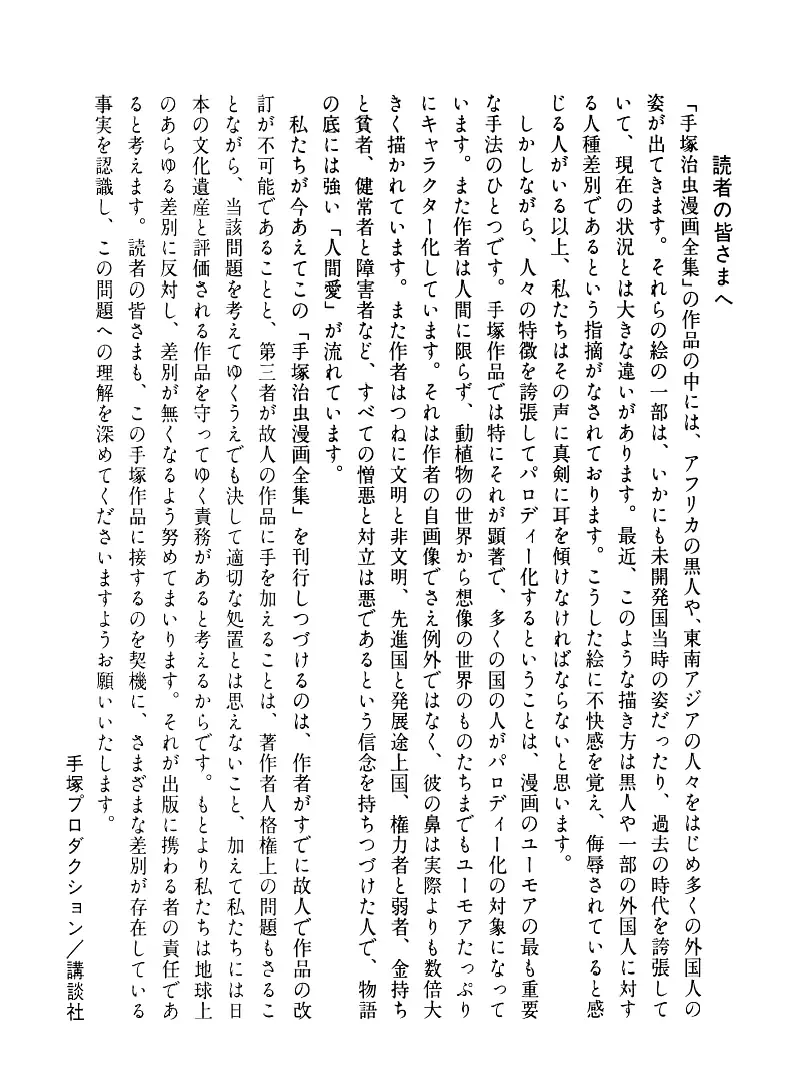 読者の皆さまへ
「手塚治虫漫画全集』の作品の中には、アフリカの黒人や、東南アジアの人々をはじめ多くの外国人の
姿が出てきます。それらの絵の一部は、いかにも未開発国当時の姿だったり、過去の時代を誇張して
いて、現在の状況とは大きな違いがあります。最近、このような描き方は黒人や一部の外国人に対す
る人種差別であるという指摘がなされております。こうした絵に不快感を覚え、侮辱されていると感
じる人がいる以上、私たちはその声に真剣に耳を傾けなければならないと思います。
しかしながら、人々の特徴を誇張してパロディー化するということは、漫画のユーモアの最も重要
な手法のひとつです。手塚作品では特にそれが顕著で、多くの国の人がパロディー化の対象になって
います。また作者は人間に限らず、動植物の世界から想像の世界のものたちまでもユーモアたっぷり
にキャラクター化しています。それは作者の自画像でさえ例外ではなく、彼の鼻は実際よりも数倍大
きく描かれています。また作者はつねに文明と非文明、先進国と発展途上国、権力者と弱者、金持ち
と貧者、健常者と障害者など、すべての憎悪と対立は悪であるという信念を持ちつづけた人で、物語
の底には強い「人間愛」が流れています。
私たちが今あえてこの「手塚治虫漫画全集」を刊行しつづけるのは、作者がすでに故人で作品の改
訂が不可能であることと、第三者が故人の作品に手を加えることは、著作者人格権上の問題もさるこ
とながら、当該問題を考えてゆくうえでも決して適切な処置とは思えないこと、加えて私たちには日
本の文化遺産と評価される作品を守ってゆく責務があると考えるからです。もとより私たちは地球上
のあらゆる差別に反対し、差別が無くなるよう努めてまいります。それが出版に携わる者の責任であ
ると考えます。読者の皆さまも、この手塚作品に接するのを契機に、さまざまな差別が存在している
事実を認識し、この問題への理解を深めてくださいますようお願いいたします。
手塚プロダクション／講談社